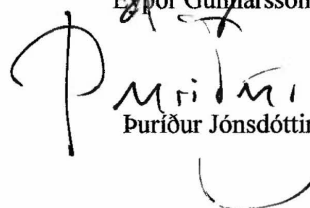 Eyþór Gunnarsson
Þuríður
Þuríður Jónsdóttir